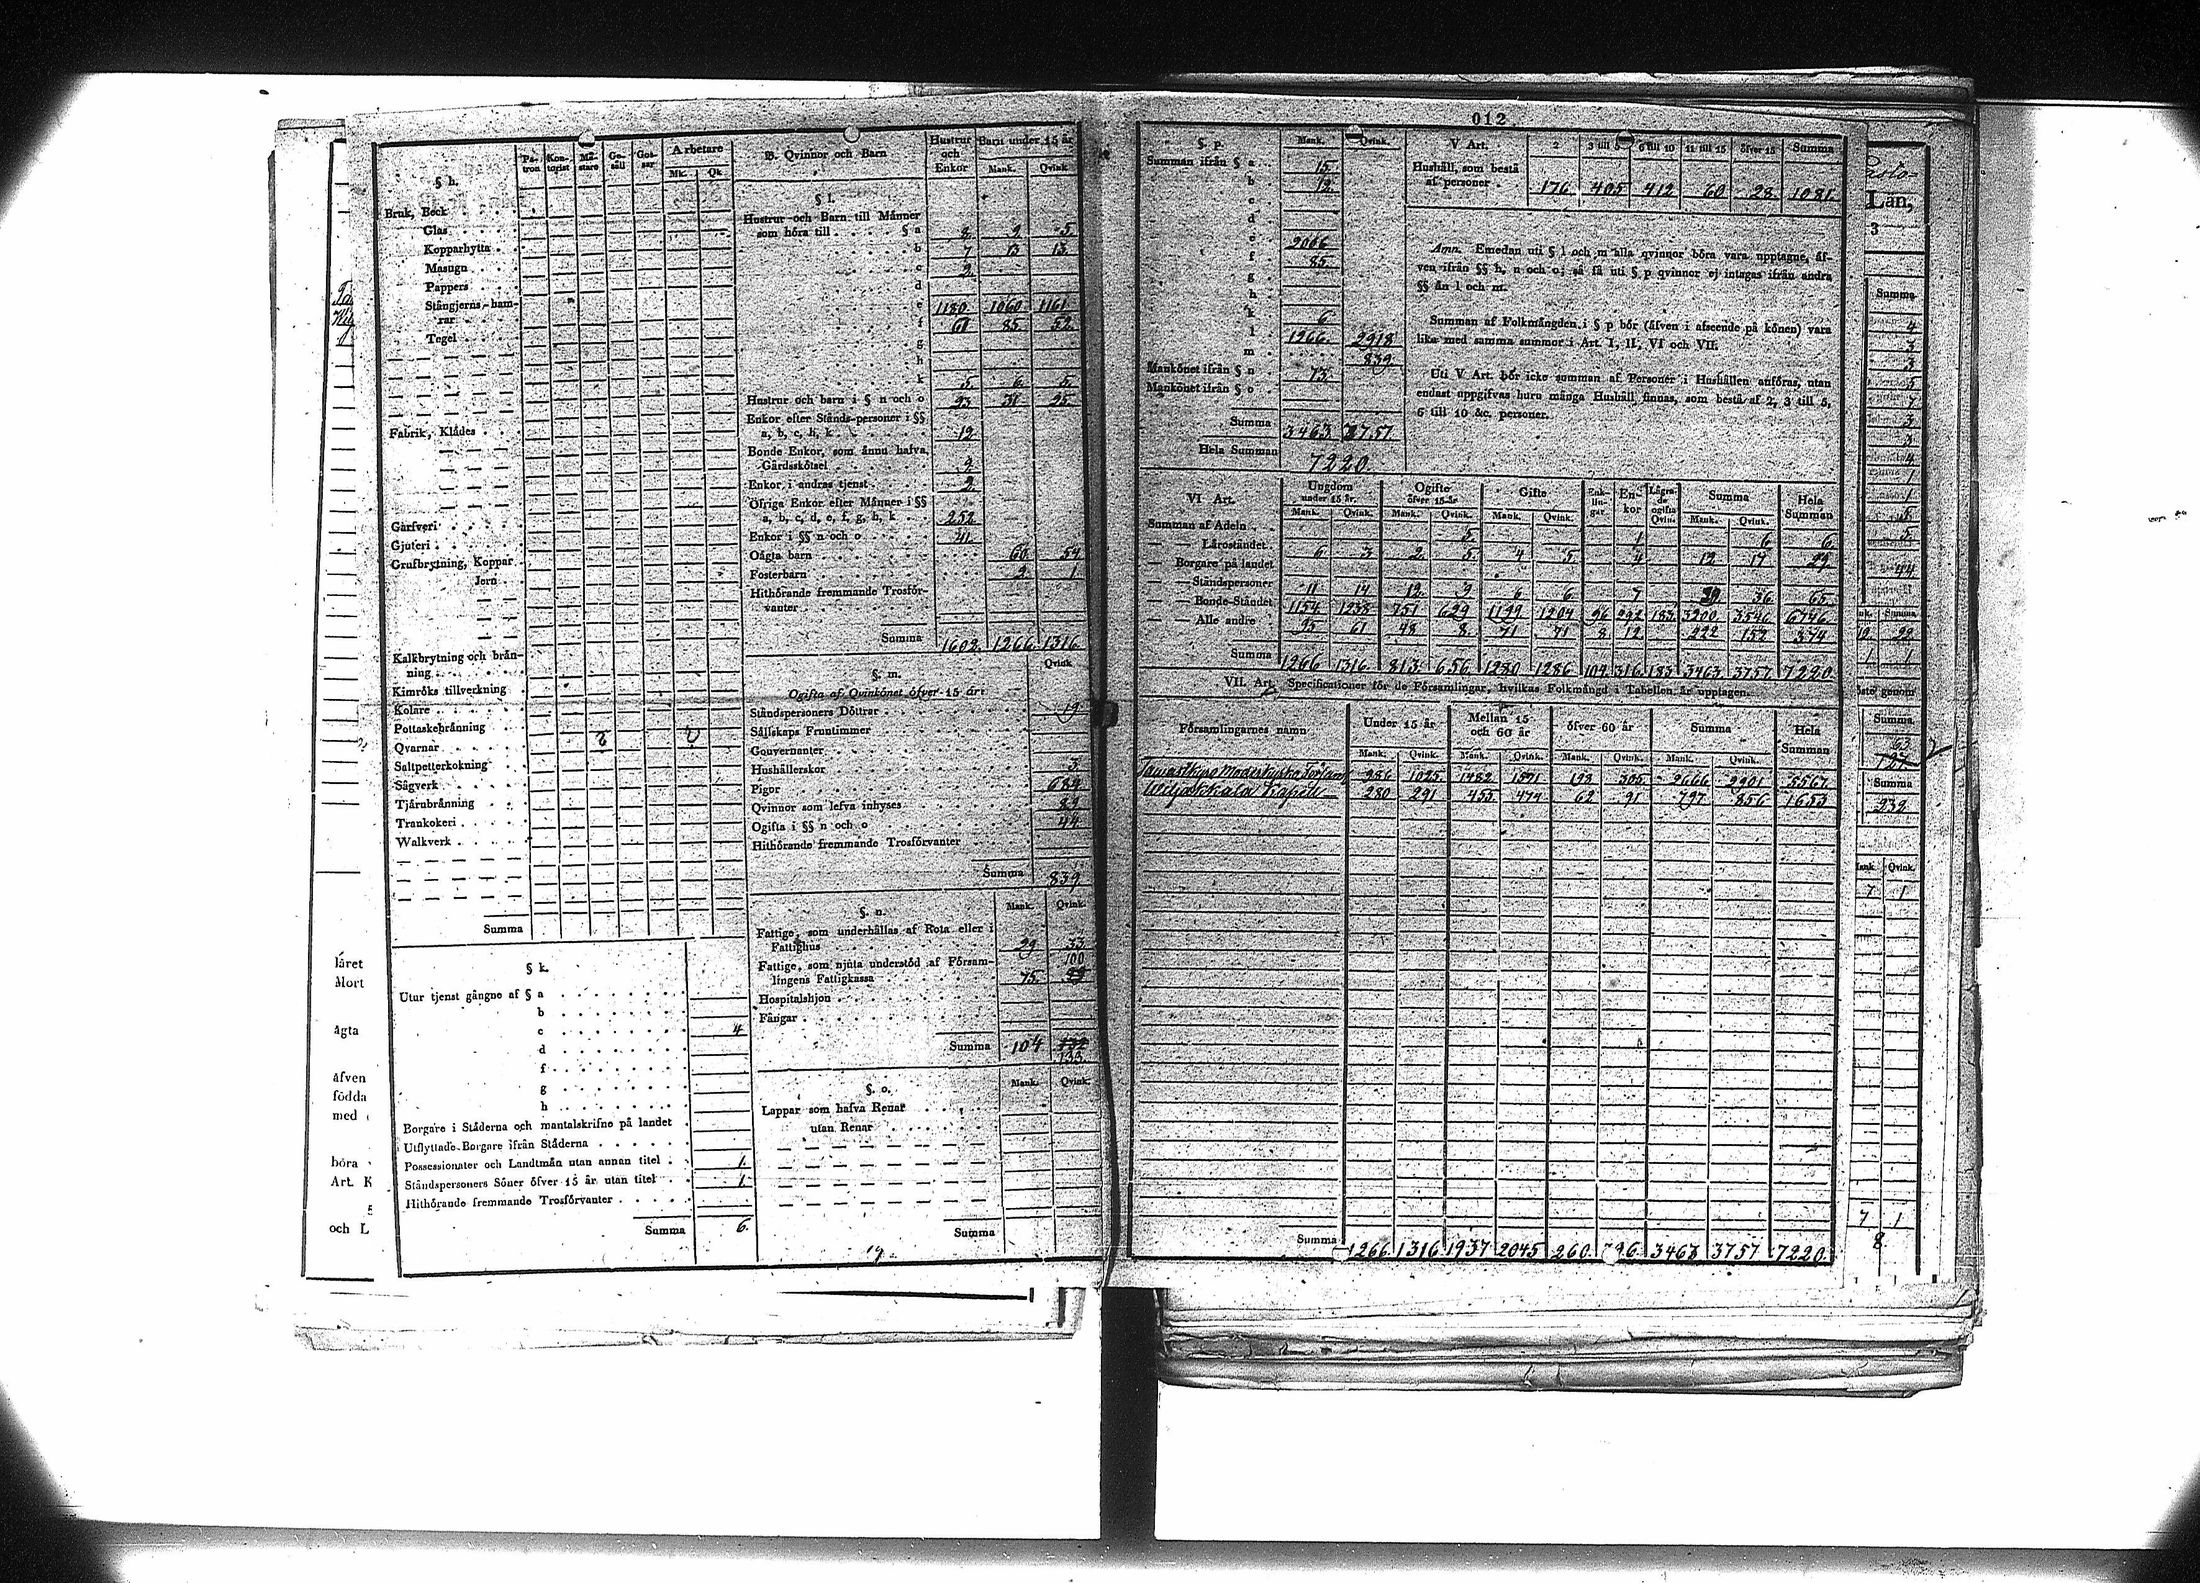 012
§ h.
Pa-tron Kon-torist Mä-stare Ge-säll Gos-sar Arbetare Mk. Qk.
Bruk, Beck
Glas
Kopparhytta
Masugn
Pappers
Stångjerns-ham-
rar
Tegel
Fabrik, Klädes
Garfveri
Gjuteri
Grufbrytning, Koppar
Jern
Kalkbrytning och brän-
ning
Kimröks tillverkning
Kolare
Pottaskebränning
Qvarnar 2 2
Saltpetterkokning
Sågverk
Tjärubränning
Trankokeri
Walkverk
Summa
§ k.
Utur tjenst gångne af § a
b
c 4
d
f
g
h
Borgare i Städerna och mantalskrifne på landet
Utflyttade Borgare ifrån Städerna
Possessionater och Landtmän utan annan titel 1.
Ståndspersoners Söner öfver 15 år utan titel 1.
Hithörande fremmande Trosförvanter
Summa 6.
B. Qvinnor och Barn
Hustrur och Enkor Barn under 15 år Mank. Qvink.
§ l.
Hustrur och Barn till Männer
som höra till § a 8 9 5
b 7 13 13
c 2
d
e 1180 1060 1161
f 61 85 52
g
h
k 5 6 5
Hustrur och barn i § n och o 23 31 25
Enkor efter Stånds-personer i §§
a, b, c, h, k 12
Bonde Enkor, som ännu hafva
Gårdsskötsel 9
Enkor, i andras tjenst 2
Öfriga Enkor efter Männer i §§
a, b, c, d, e, f, g, h, k 252
Enkor i §§ n och o 41
Oägta barn 60 54
Fosterbarn 2 1
Hithörande fremmande Trosför-
vanter
Summa 1602. 1266 1316
§. m. Qvink
Ogifta af Qvinkönet öfver 15 år:
Ståndspersoners Döttrar 19
Sällskaps Fruntimmer
Gouvernanter
Hushållerskor 3
Pigor 684
Qvinnor som lefva inhyses 89
Ogifta i §§ n och o 44
Hithörande fremmande Trosförvanter
Summa 839
§. n. Mank. Qvink.
Fattige, som underhållas af Rota eller i
Fattighus 29 33
Fattige, som njuta understöd af Försam- 100
lingens Fattigkassa 75.
Hospitalshjon
Fångar
Summa 104
133
§. o. Mank. Qvink.
Lappar som hafva Renar
utan Renar
Summa
§ p. Mank. Qvink.
Summan ifrån § a 15
b 12
c
d
e 2006
f 85
g
h
k 6
l 1266 2918
m 839
Mankönet ifrån § n 73
Mankönet ifrån § o
Summa 3463 3757
Hela Summan 7220
V Art. 2 3 till 5 6 till 10 11 till 15 öfver 15 Summa
Hushåll, som bestå
af personer 176 405 412 60 28 1081.
Anm. Emedan uti § l och m alla qvinnor böra vara upptagne, äf-
ven ifrån §§ h, n och o; så få uti § p qvinnor ej intagas ifrån andra
§§ än l och m.
Summan af Folkmängden i § p bör (äfven i afseende på könen) vara
lika med samma summor i Art. I, II, VI och VII.
Uti V Art. bör icke summan af Personer i Hushållen anföras, utan
endast uppgifvas huru många Hushåll finnas, som bestå af 2, 3 till 5,
6 till 10 &c. personer.
VI Art. Ungdom under 15 år. Ogifte öfver 15 år Gifte Enk-lin-gar En-kor Lägra-de ogifta Qvin. Summa Hela Summan
Mank. Qvink. Mank. Qvink. Mank. Qvink. Mank. Qvink.
Summan af Adeln 5 1 6 6
— — Läroståndet 6 3 2 5 4 5 4 12 17 29
— — Borgare på landet
— — Ståndspersoner 11 14 12 9 6 6 7 29 36 65
— — Bonde-Ståndet 1154 1238 751 629 1199 1204 96 292 183 3200 3546 6746
— — Alle andre 95 61 48 8 71 71 8 12 222 152 374
Summa 1266 1316 813 656 1280 1286 104 316 183 3463 3757 7220
VII. Art. Specificationer för de Församlingar, hvilkas Folkmängd i Tabellen är upptagen.
Församlingarnes namn Under 15 år Mellan 15 och 60 år öfver 60 år Summa Hela Summan
Mank. Qvink. Mank. Qvink. Mank. Qvink. Mank. Qvink.
Tavastkyro Moderkyrko Församl. 986 1025 1482 1571 198 305 2666 2901 5567
Viljakkala Kapell 280 291 455 474 62 91 797 856 1653
Summa 1266 1316 1937 2045 260 396 3463 3757 7220
låret
Mort
ägta
äfven
födda
med
böra
Art. K
och L
Län,
3
Summa
4
3
3
5
7
3
3
4
1
1
5
5
44
Summa
1
genom
Summa
Summa
232
Mank Qvink.
7 1
7 1
8